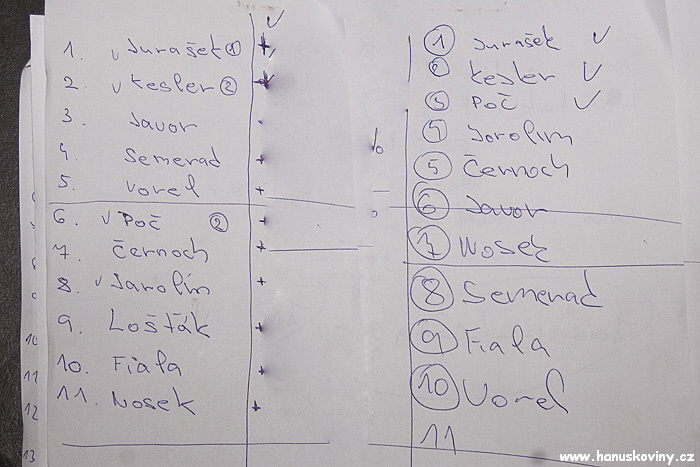 1. v Jurašek ①
2. v Kesler ②
3. Javor
4. Semerad
5. Vorel
6. v Poč ②
7. Černoch
8. v Jarolím
9. Lošťák
10. Fiala
11. Nosek
10
11
12
13
① Jurašek ✓
② Kesler ✓
③ Poč ✓
④ Jorolim
⑤ Černoch
⑥ Javor
⑦ Nosek
⑧ Semerad
⑨ Fiala
⑩ Vorel
11
www.hanuskoviny.cz